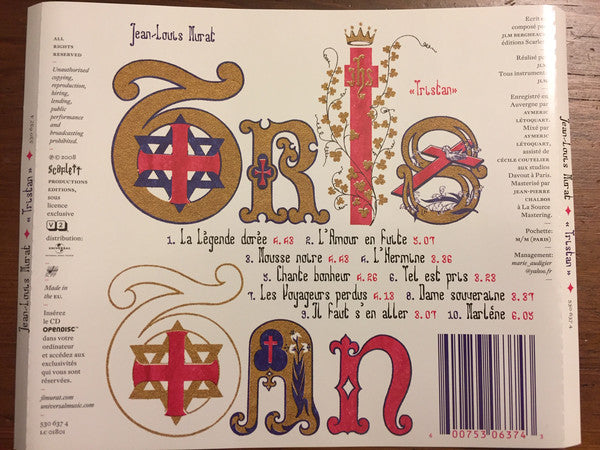 ALL
RIGHTS
RESERVED
Unauthorized
copying,
reproduction,
hiring,
lending,
public
performance
and
broadcasting
prohibited.
℗ © 2008
Scarlett
PRODUCTIONS
EDITIONS,
sous
licence
exclusive
V2
distribution:
UNIVERSAL
Made in
the EU.
Insérez
le CD
OPENDISC™
dans votre
ordinateur
et accédez aux
exclusivités
qui vous sont
réservées.
jlmurat.com
universalmusic.com
530 637 4
LC 01801
Jean-Louis Murat
IHS
«Tristan»
TRIS
1. La Légende dorée 4.43 2. L'Amour en fuite 5.07
3. Mousse noire 4.43 4. L'Hermine 3.36
5. Chante bonheur 4.26 6. Tel est pris 3.23
7. Les Voyageurs perdus 4.13 8. Dame souveraine 3.37
9. Il faut s'en aller 3.07 10. Marlène 6.05
TAN
Ecrit et
composé par
JLM BERGHEAUD
éditions Scarlett
Réalisé par
JLM
Tous instruments
JLM
Enregistré en
Auvergne par
AYMERIC
LÉTOQUART.
Mixé par
AYMERIC
LÉTOQUART,
assisté de
CÉCILE COUTELIER
aux studios
Davout à Paris.
Masterisé par
JEAN-PIERRE
CHALBOS
à La Source
Mastering.
Pochette:
M/M (PARIS)
Management:
marie_audigier
@yahoo.fr
4 00753 06374 3
Jean-Louis Murat « Tristan » 530 637 4
Jean-Louis Murat « Tristan » 530 637 4